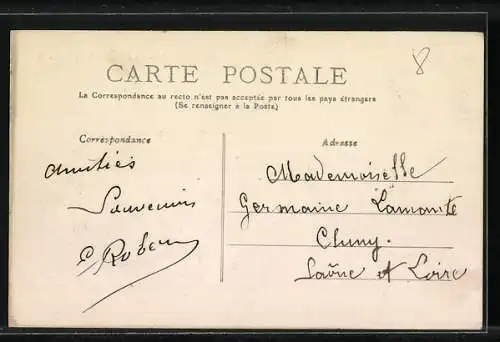 8
CARTE POSTALE
La Correspondance au recto n'est pas acceptée par tous les pays étrangers
(Se renseigner à la Poste)
Correspondance
Amitiés
Souvenirs
Adresse
Mademoiselle
Germaine Lamonte
Cluny.
Saône et Loire